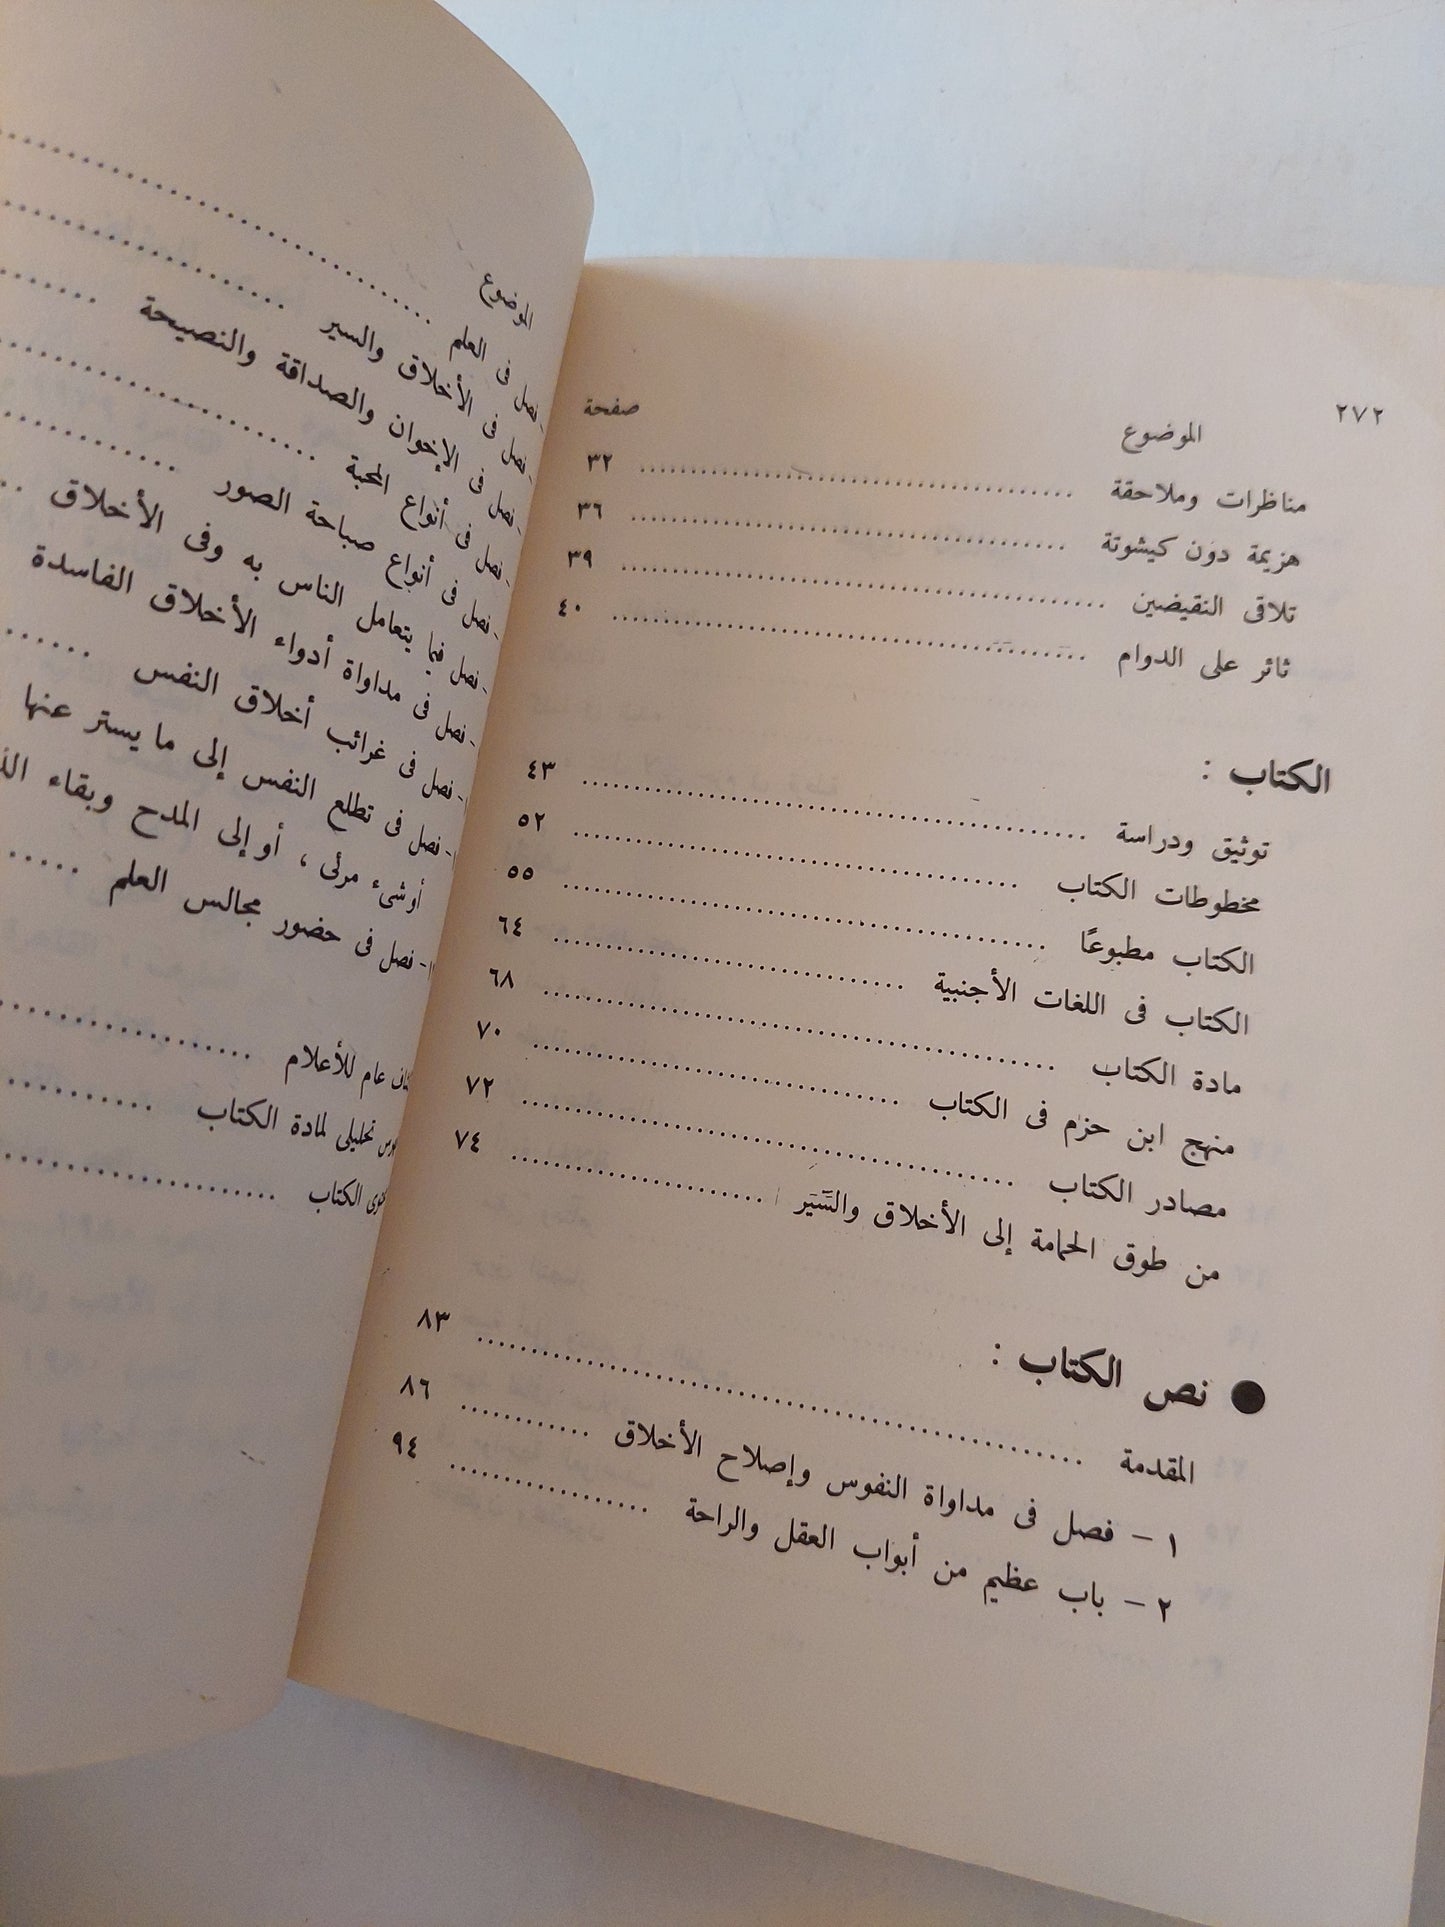 ٢٧٢
الموضوع صفحة
مناظرات وملاحقة ........ ٣٢
هزيمة دون كيشوتة ........ ٣٦
تلاقى النقيضين ........ ٣٩
ثائر على الدوام ........ ٤٠
الكتاب :
توثيق ودراسة ........ ٤٣
مخطوطات الكتاب ........ ٥٢
الكتاب مطبوعًا ........ ٥٥
الكتاب فى اللغات الأجنبية ........ ٦٤
مادة الكتاب ........ ٦٨
منهج ابن حزم فى الكتاب ........ ٧٠
مصادر الكتاب ........ ٧٢
من طوق الحمامة إلى الأخلاق والسِّيَر ........ ٧٤
● نص الكتاب :
المقدمة ........ ٨٣
١ – فصل فى مداواة النفوس وإصلاح الأخلاق ........ ٨٦
٢ – باب عظيم من أبواب العقل والراحة ........ ٩٤
الموضوع
- فصل فى العلم ........
- فصل فى الأخلاق والسير ........
- فصل فى الإخوان والصداقة والنصيحة ........
- فصل فى أنواع المحبة ........
- فصل فى أنواع صباحة الصور ........
- فصل فيما يتعامل الناس به وفى الأخلاق ..
- فصل فى مداواة أدواء الأخلاق الفاسدة
- فصل فى غرائب أخلاق النفس ........
- فصل فى تطلع النفس إلى ما يستر عنها
أو شىء مرئى ، أو إلى المدح وبقاء
- فصل فى حضور مجالس العلم ........
عام للأعلام ........
تحليلى لمادة الكتاب ........
الكتاب ........